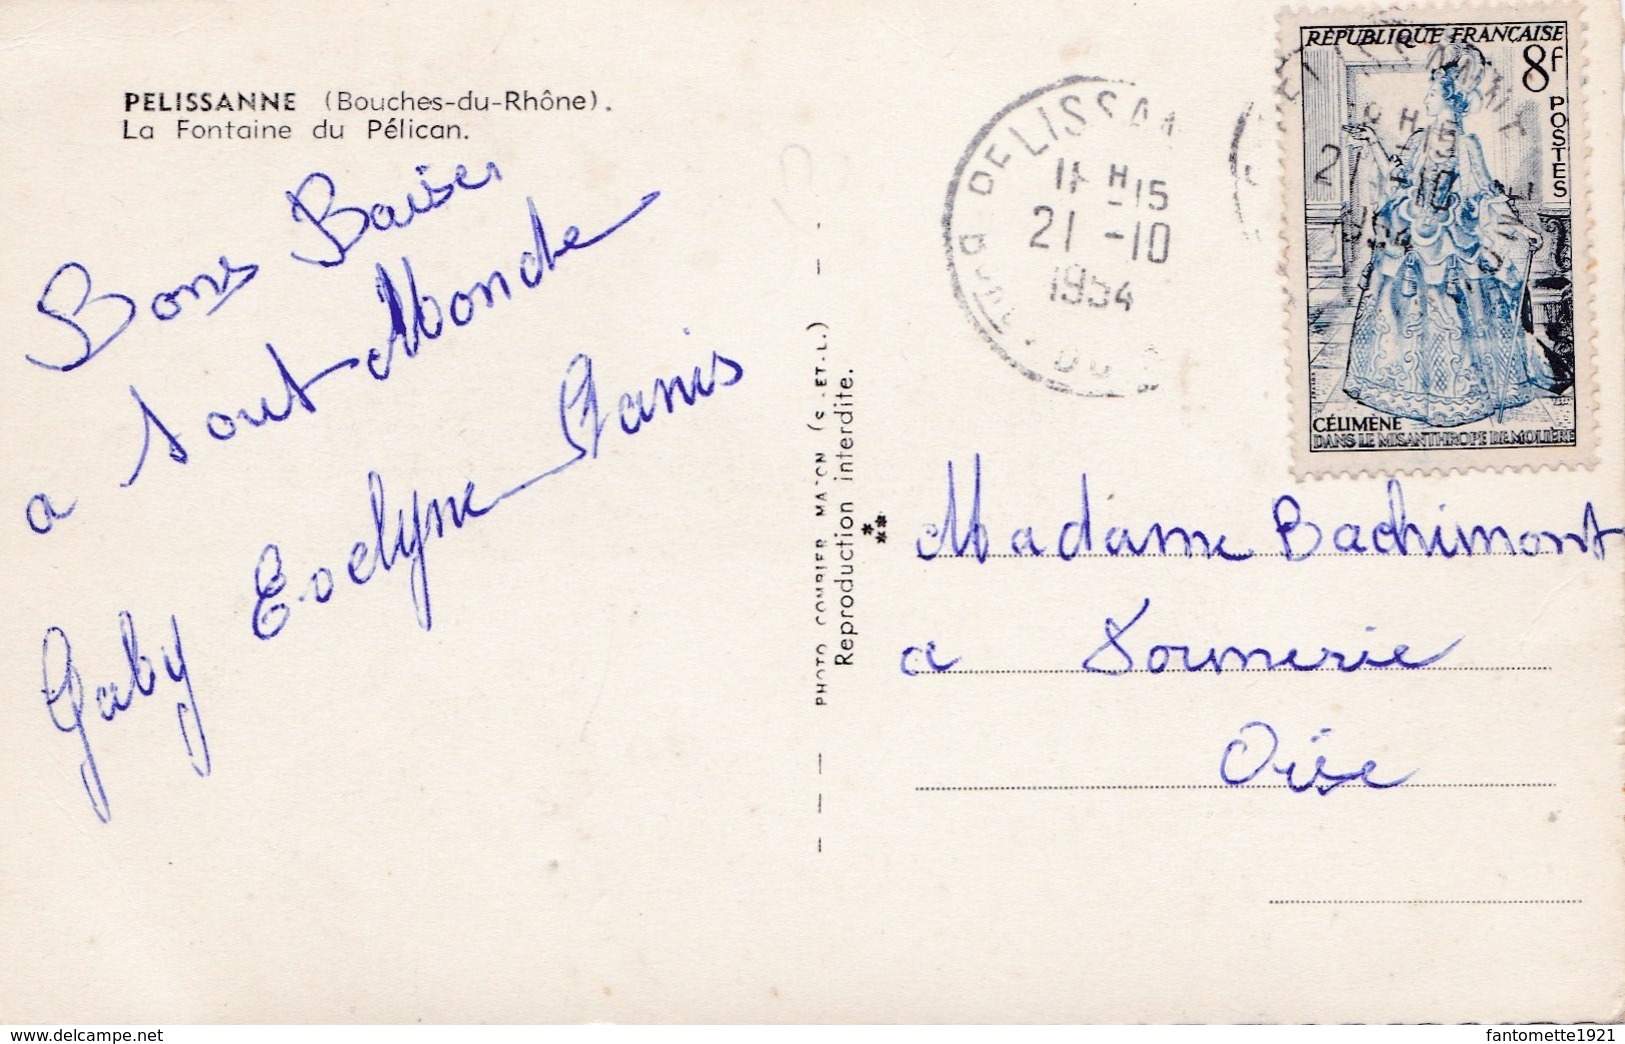 PELISSANNE (Bouches-du-Rhône).
La Fontaine du Pélican.
Bons Baisers
a tout Monde
Gaby Evelyne
PHOTO COMBIER MACON (S.-ET-L.)
Reproduction interdite.
PELISSAN
11 H 15
21 -10
1954
RÉPUBLIQUE FRANÇAISE
8f
POSTES
CÉLIMÈNE
DANS LE MISANTHROPE DE MOLIÈRE
21 -10
1954
Madame Bachimont
a
Oise
www.delcampe.net
fantomette1921